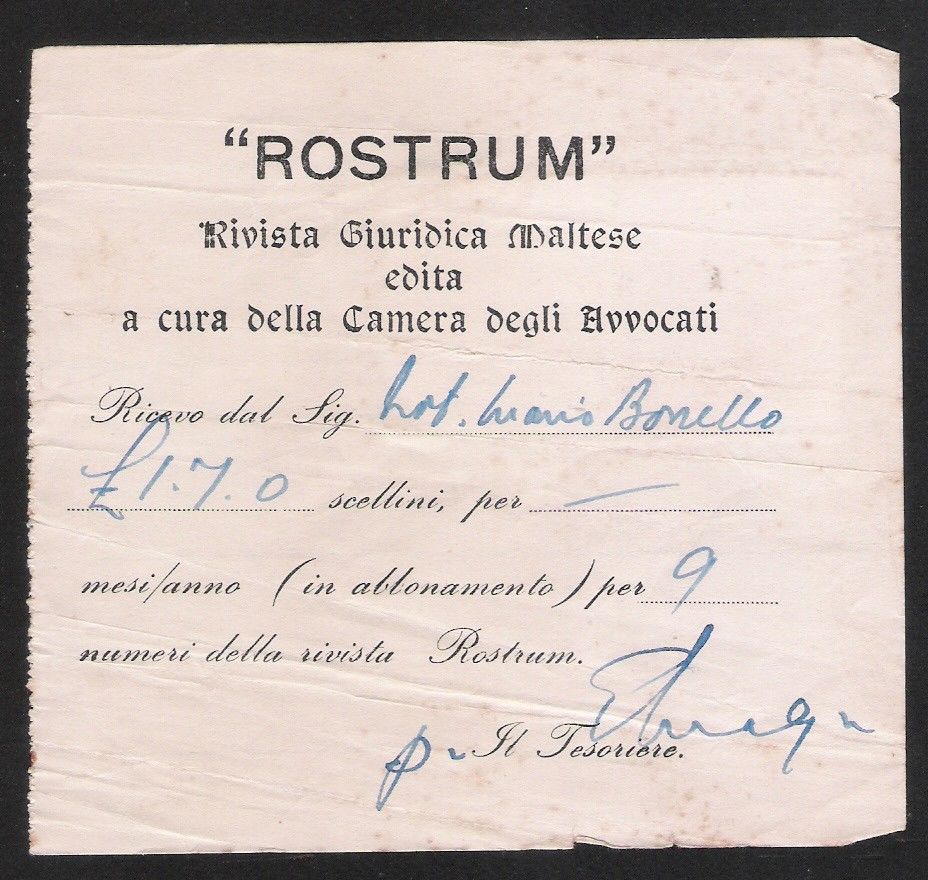 “ROSTRUM”
Rivista Giuridica Maltese
edita
a cura della Camera degli Avvocati
Ricevo dal Sig. Not. Mario Bonello
£1.7.0 scellini, per —
mesi/anno (in abbonamento) per 9
numeri della rivista Rostrum.
p. Il Tesoriere.